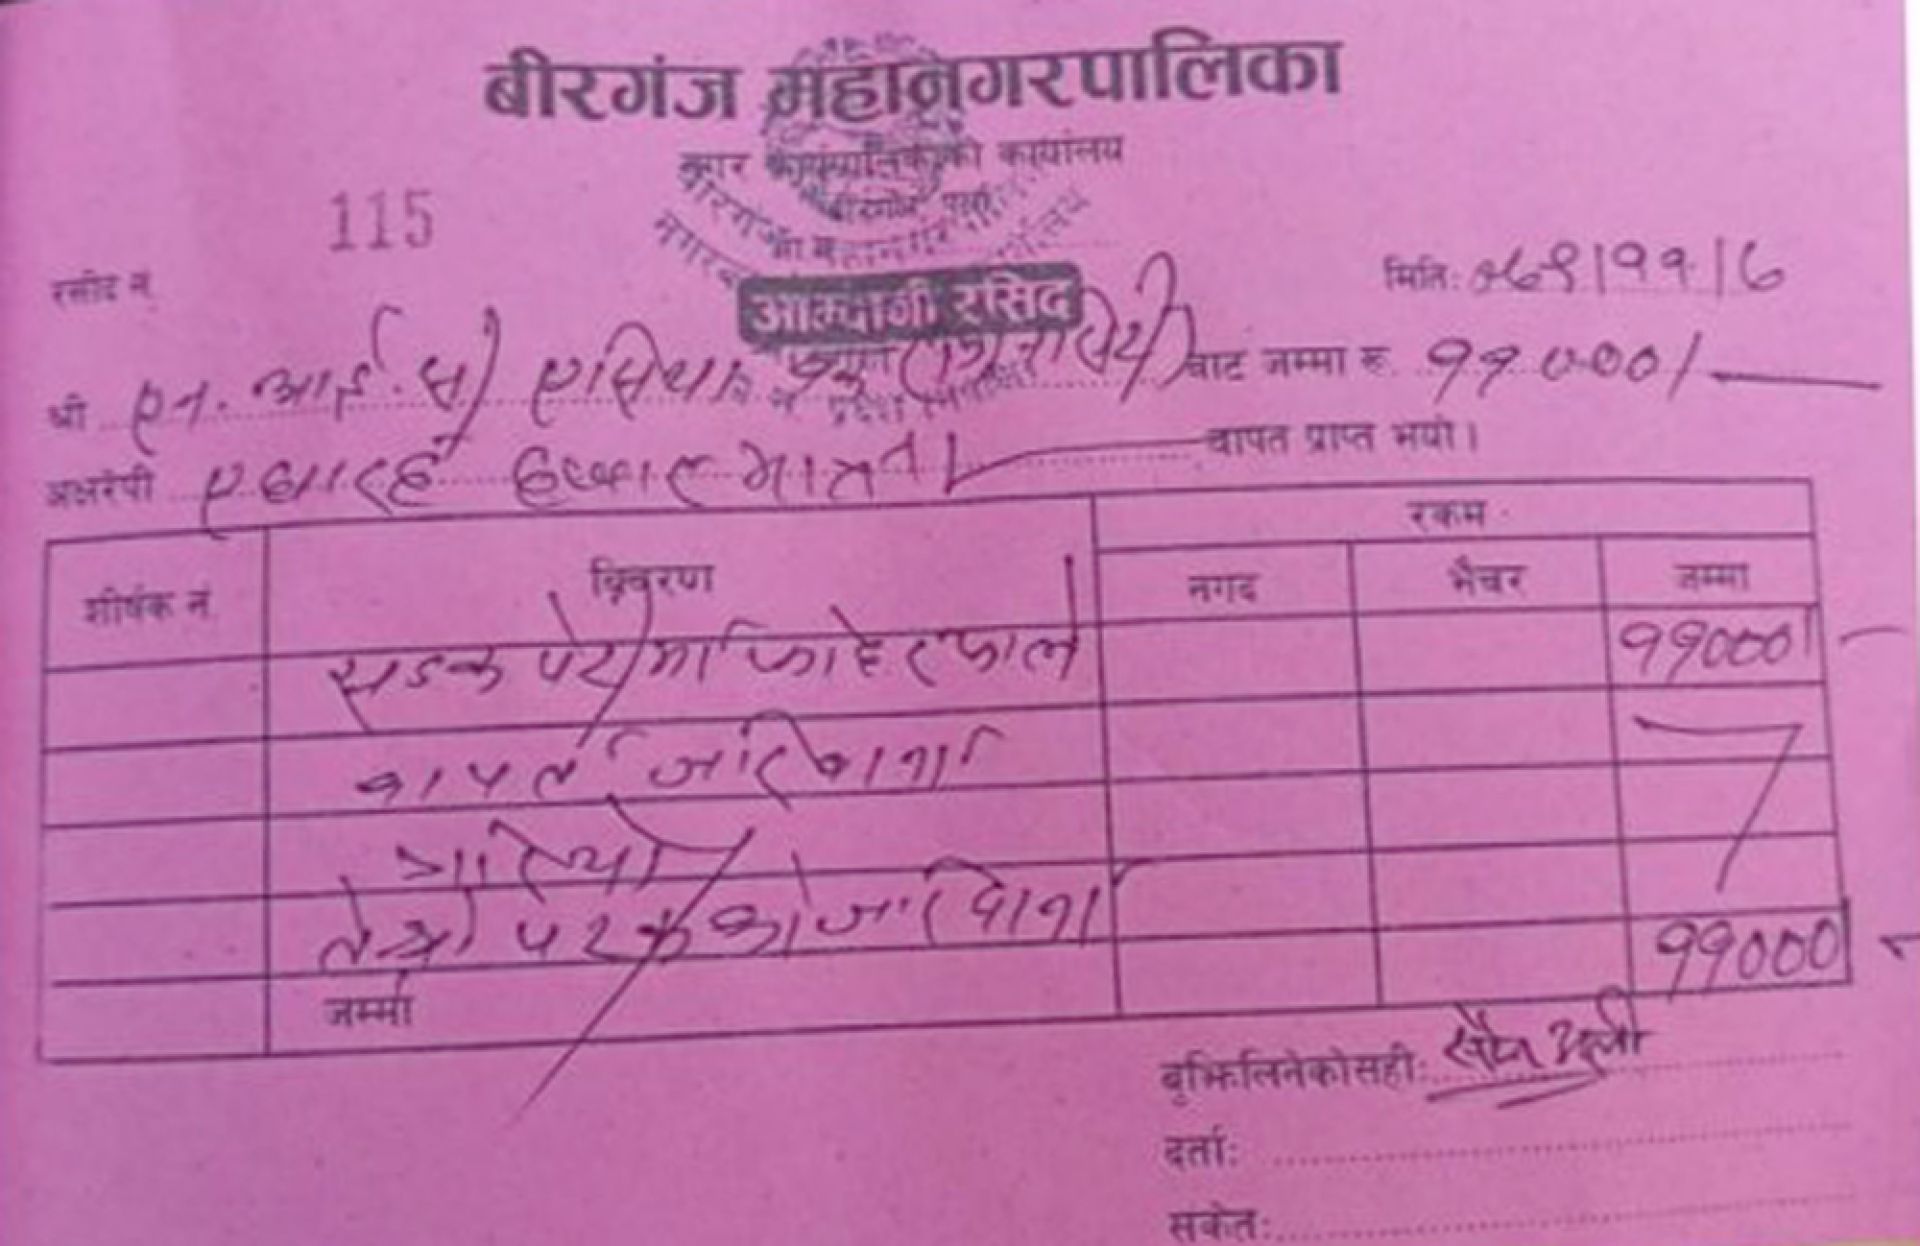 बीरगंज महानगरपालिका
नगर कार्यपालिकाको कार्यालय
बीरगंज पर्सा
115
रसीद नं.
मिति: ०७९।११।७
आम्दानी रसिद
श्री एन. आई. सी एसिया बाट जम्मा रू ११०००।
अक्षरेपी एघार हजार मात्र। वापत प्राप्त भयो।
रकम
शीर्षक नं विवरण नगद भैचर जम्मा
सडक पेटीमा फोहर फाले ११०००।
वापत जरिवाना
गरियो
तेश्रो पटकको जरिवाना
जम्मा ११०००
बुझिलिनेकोसही:
दर्ता:
सकेत: